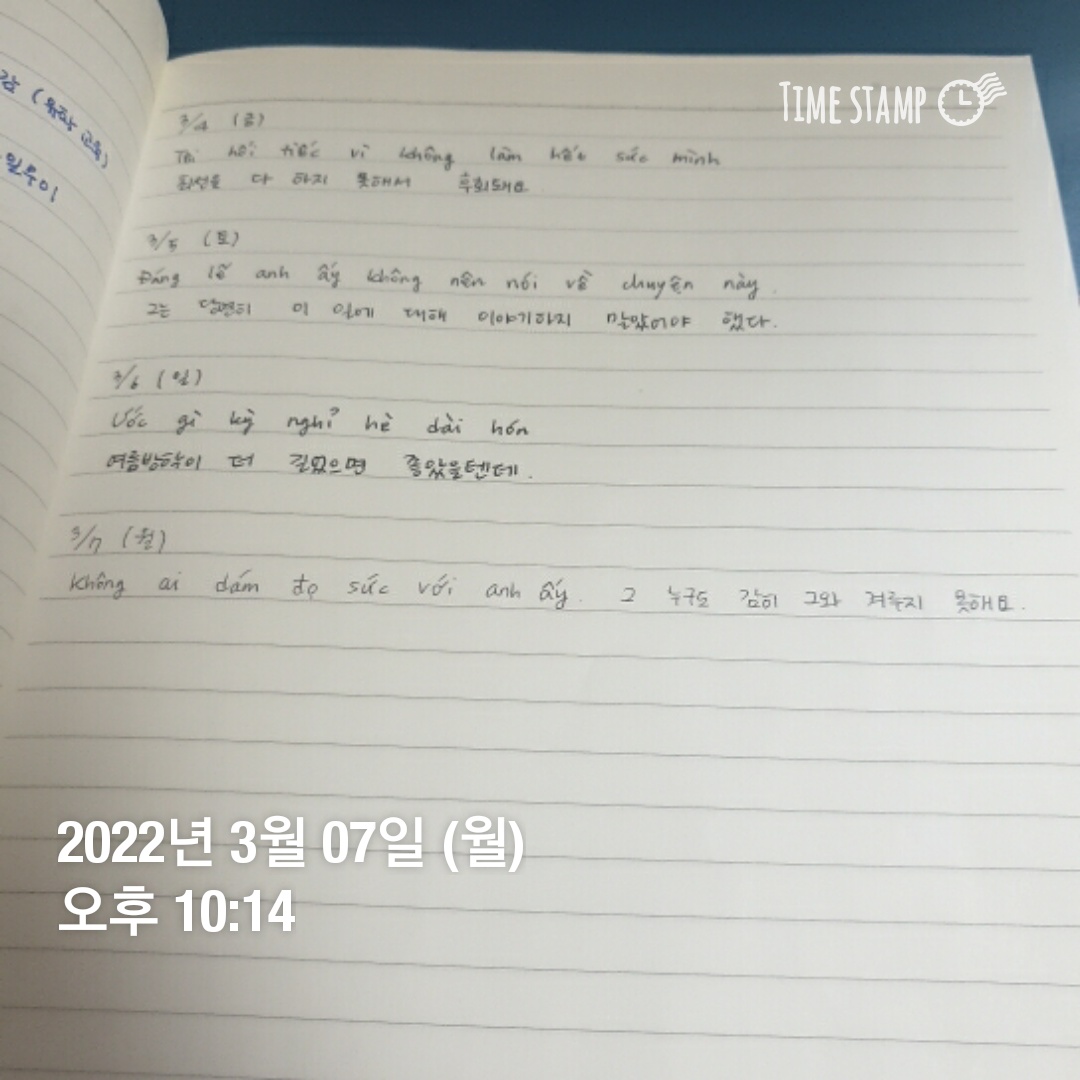 감 (유학 교육)
일우이
TIME STAMP
3/4 (금)
Tôi hối tiếc vì không làm hết sức mình
최선을 다 하지 못해서 후회돼요
3/5 (토)
Đáng lẽ anh ấy không nên nói về chuyện này.
그는 당연히 이 일에 대해 이야기하지 말았어야 했다.
3/6 (일)
Ước gì kỳ nghỉ hè dài hơn
여름방학이 더 길었으면 좋았을텐데.
3/7 (월)
Không ai dám đọ sức với anh ấy. 그 누구도 감히 그와 겨루지 못해요.
2022년 3월 07일 (월)
오후 10:14